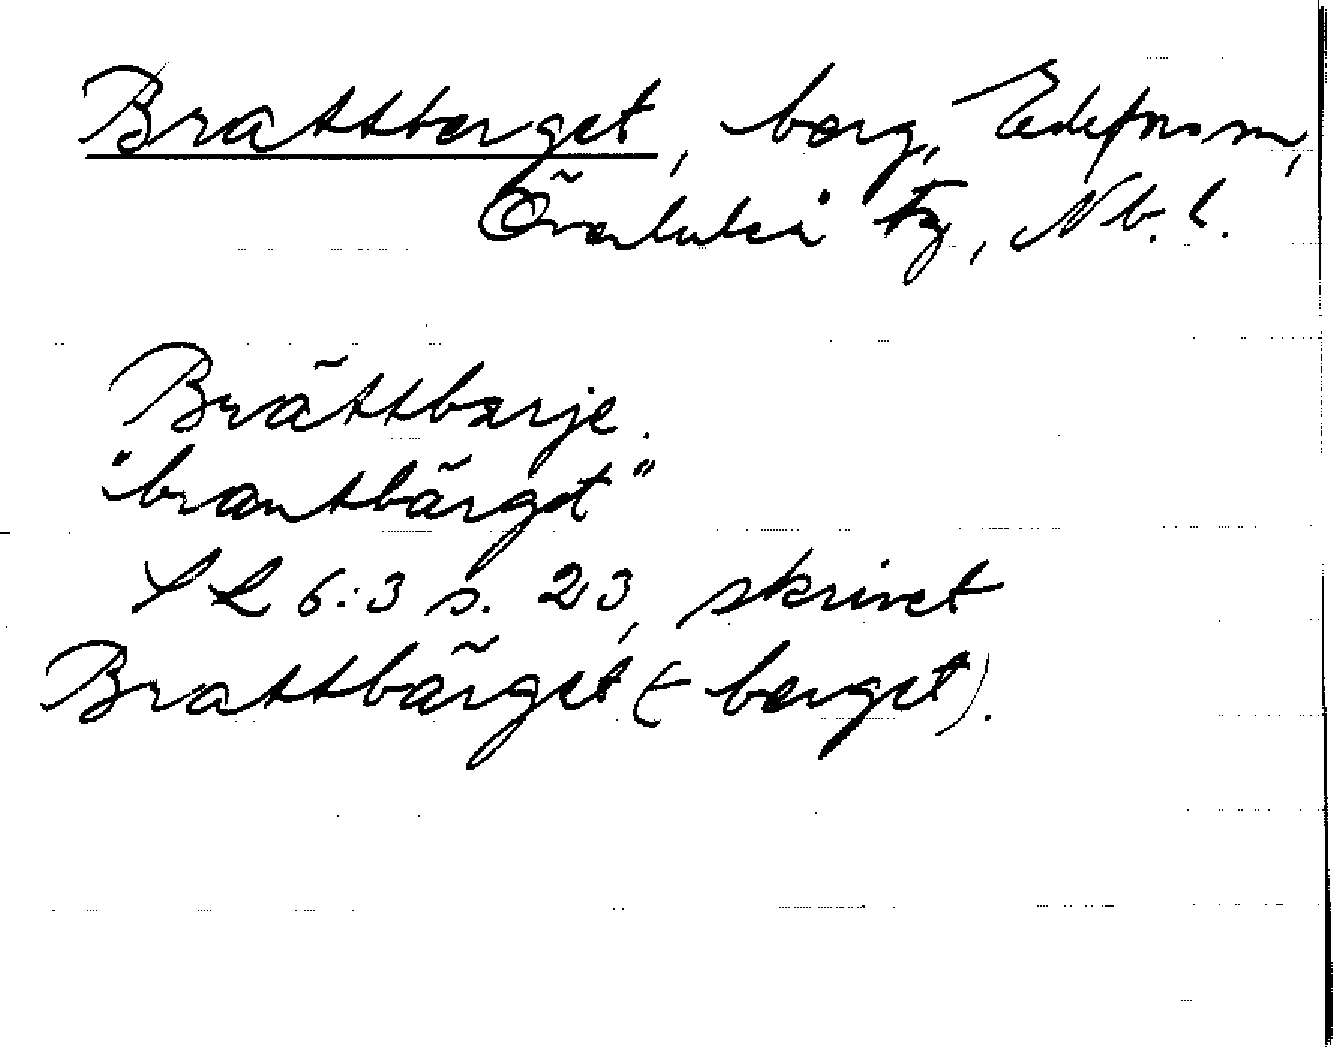 Brattberget, berg, Edefors sn,
Överluleå tg, Nb. l.
Brättbärje.
"brantbärget"
SL 6:3 s. 23, skrivet
Brattbärget (-berget).